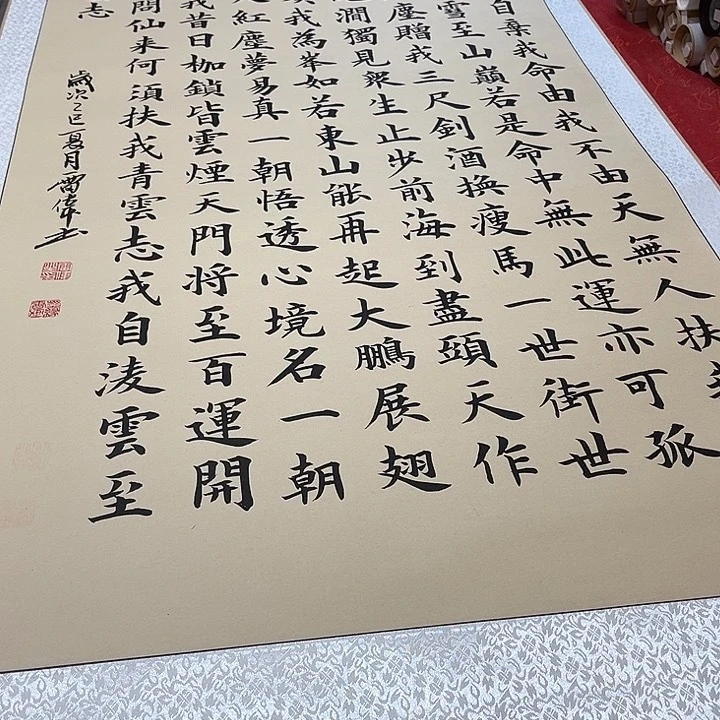 自棄我命由我不由天無人扶我
雪至山巔若是命中無此運亦可孤
塵贈我三尺釗酒換瘦馬一世街世
澗獨見眾生止步前海到盡頭天作
我為峯如若東山能再起大鵬展翅
紅塵夢易真一朝悟透心境名一朝
我昔日枷鎖皆雲煙天門将至百運開
問仙来何須扶我青雲志我自淩雲至
志
歲次乙巳夏月 偉书